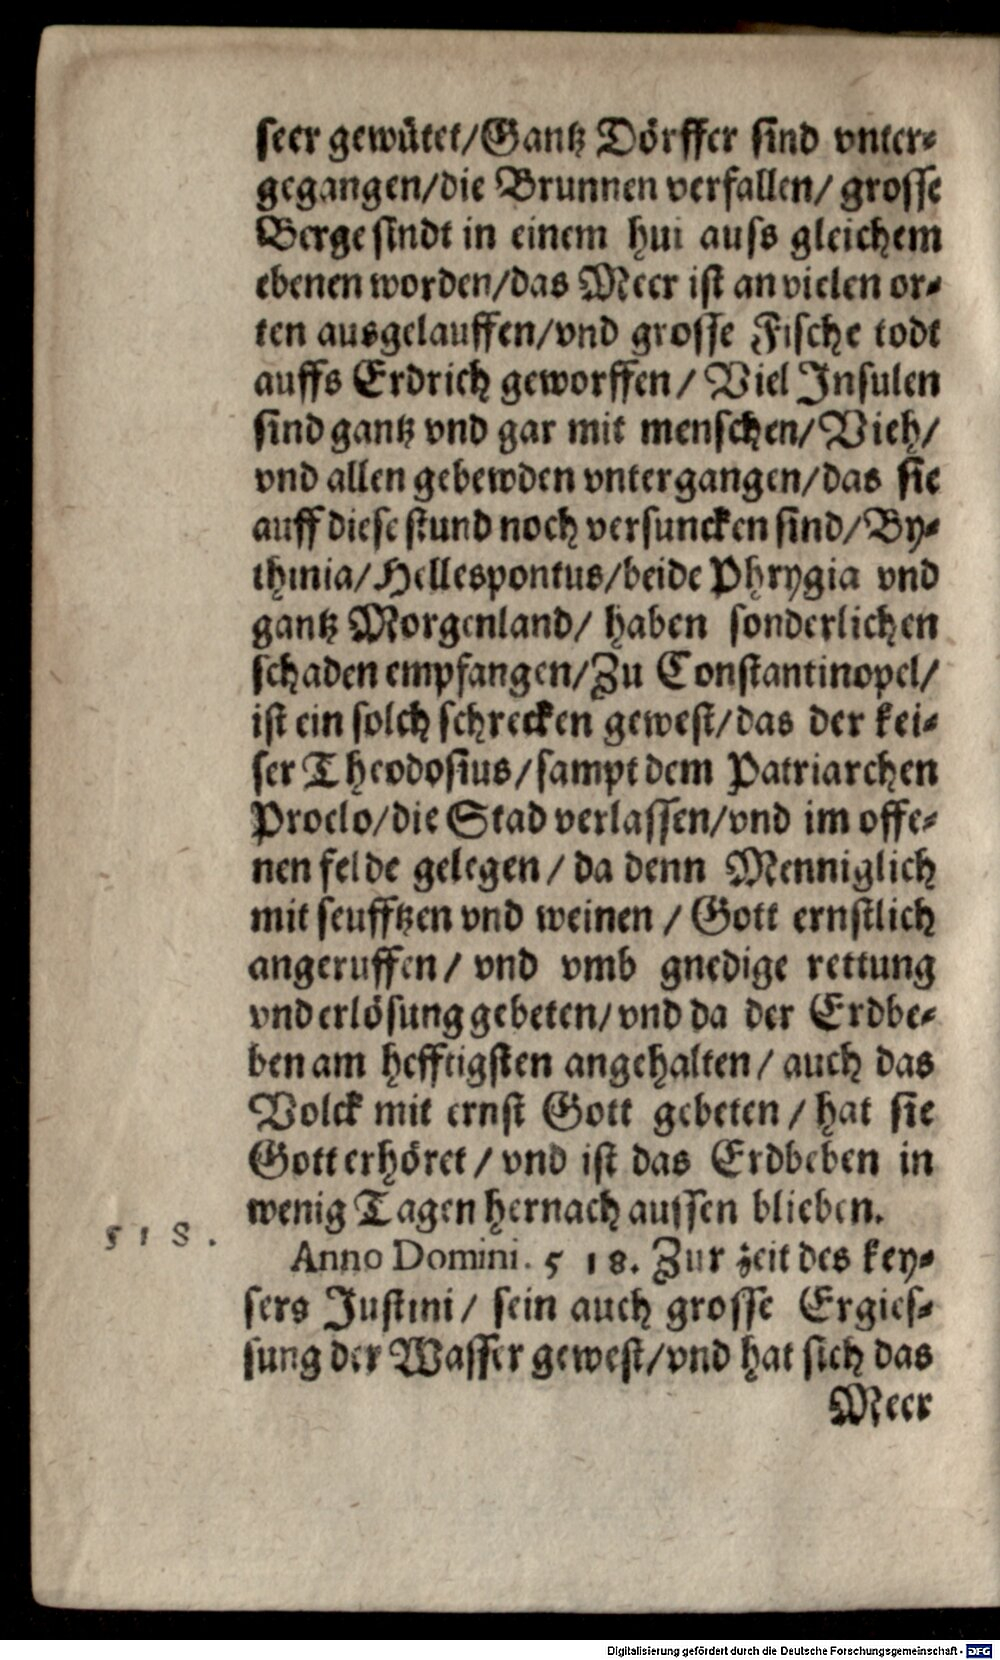 seer gewütet/Gantz Dörffer sind vnter-
gegangen/die Brunnen verfallen/ grosse
Berge sindt in einem hui auss gleichem
ebenen worden/das Meer ist an vielen or-
ten ausgelauffen/vnd grosse Fische todt
auffs Erdrich geworffen/ Viel Insulen
sind gantz vnd gar mit menschen/Vieh/
vnd allen gebewden vntergangen/das sie
auff diese stund noch versuncken sind/By-
thinia/Hellespontus/beide Phrygia vnd
gantz Morgenland/ haben sonderlichen
schaden empfangen/Zu Constantinopel/
ist ein solch schrecken gewest/das der kei-
ser Theodosius/sampt dem Patriarchen
Proclo/die Stad verlassen/vnd im offe-
nen felde gelegen/ da denn Menniglich
mit seufftzen vnd weinen/ Gott ernstlich
angeruffen/ vnd vmb gnedige rettung
vnd erlösung gebeten/vnd da der Erdbe-
ben am hefftigsten angehalten/ auch das
Volck mit ernst Gott gebeten/ hat sie
Gott erhöret/ vnd ist das Erdbeben in
wenig Tagen hernach aussen blieben.
518.
Anno Domini. 518. Zur zeit des key-
sers Justini/ sein auch grosse Ergies-
sung der Wasser gewest/vnd hat sich das
Meer
Digitalisierung gefördert durch die Deutsche Forschungsgemeinschaft - DFG